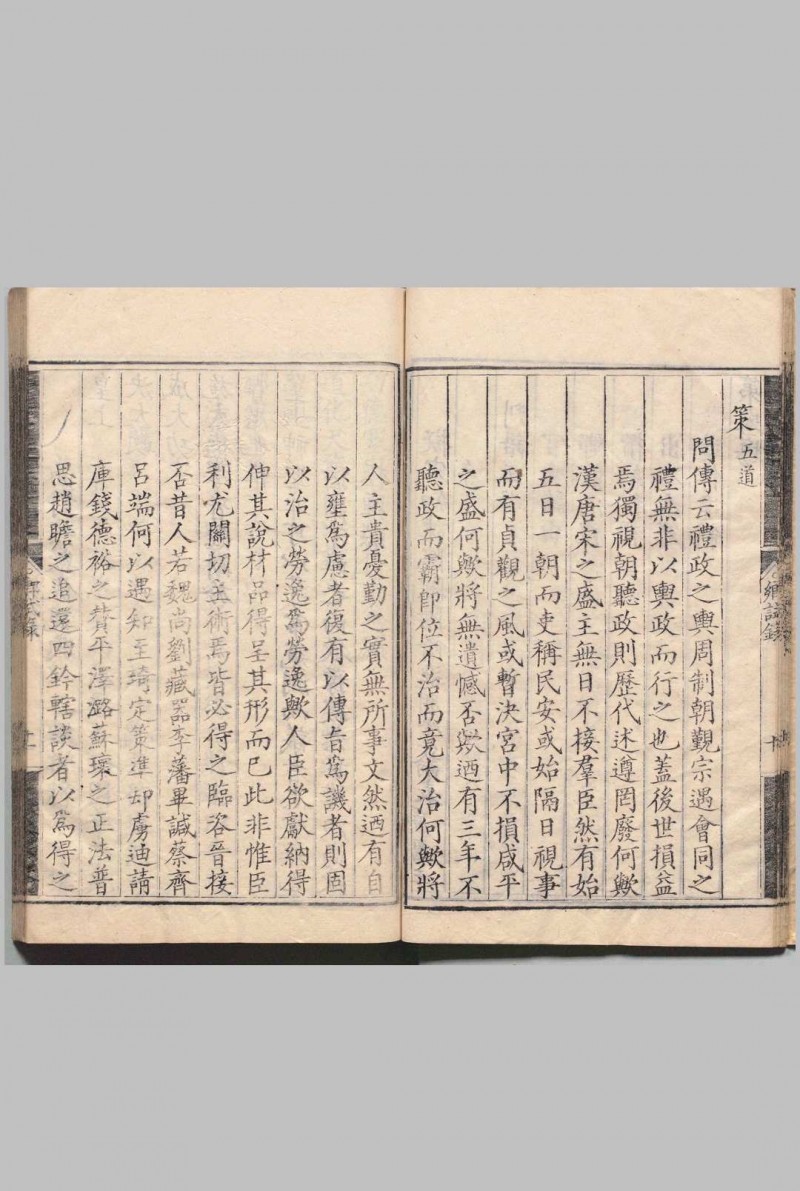 策五道
問傳云禮政之輿周制朝覲宗遇會同之
禮無非以輿政而行之也蓋後世損益
焉獨視朝聽政則歷代迷遵罔廢何歟
漢唐宋之盛主無日不接羣臣然有始
五日一朝而吏稱民安或始隔日視事
而有貞觀之風或暫決宮中不損咸平
之盛何歟將無遺憾否歟迺有三年不
聽政而霸卽位不治而竟大治何歟將
鄉試錄
十
人主貴憂勤之實無所事文然迺有自
以壅爲慮者復有以傳旨爲譏者則固
以治之勞逸爲勞逸歟人臣欲獻納得
伸其說材品得呈其形而已此非惟臣
利尤關切主術焉皆必得之臨咨晉接
否昔人若魏尚劉藏器李藩畢諴蔡齊
呂端何以遇知主琦定策準却虜迪請
庫錢德裕之贊平澤潞蘇瓌之正法普
思趙瞻之追還四鈐轄談者以爲得之